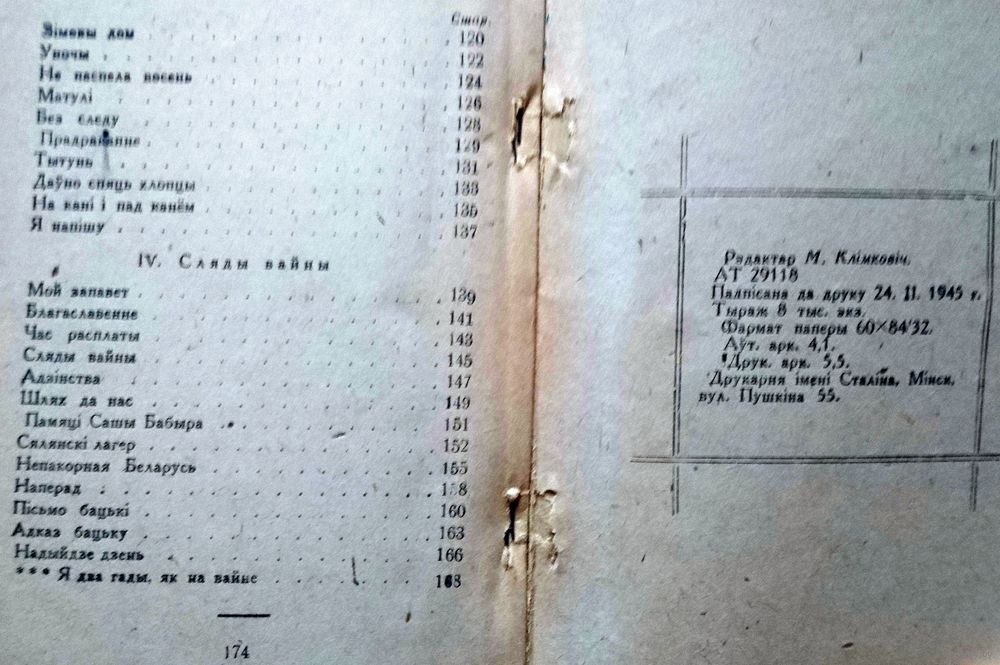 Стар.
Зімовы дом 120
Уночы 122
Не паспела восень 124
Матулі 126
Без следу 128
Прадракание 129
Тытунь 131
Даўно спяць хлопцы 133
На кані і пад канём 135
Я напішу 137
IV. Сляды вайны
Мой запавет 139
Благаславенне 141
Час расплаты 143
Сляды вайны 145
Адзінства 147
Шлях да нас 149
Памяці Сашы Бабыра 151
Сялянскі лагер 152
Непакорная Беларусь 155
Наперад 158
Пісьмо бацькі 160
Адказ бацьку 163
Надыйдзе дзень 166
*** Я два гады, як на вайне 168
174
Рэдактар М. Клімковіч.
АТ 29118
Падпісана да друку 24. II. 1945 г.
Тыраж 8 тыс. экз.
Фармат паперы 60×84/32.
Аўт. арк. 4,1.
Друк. арк. 5,5.
Друкарня імені Сталіна, Мінск,
вул. Пушкіна 55.